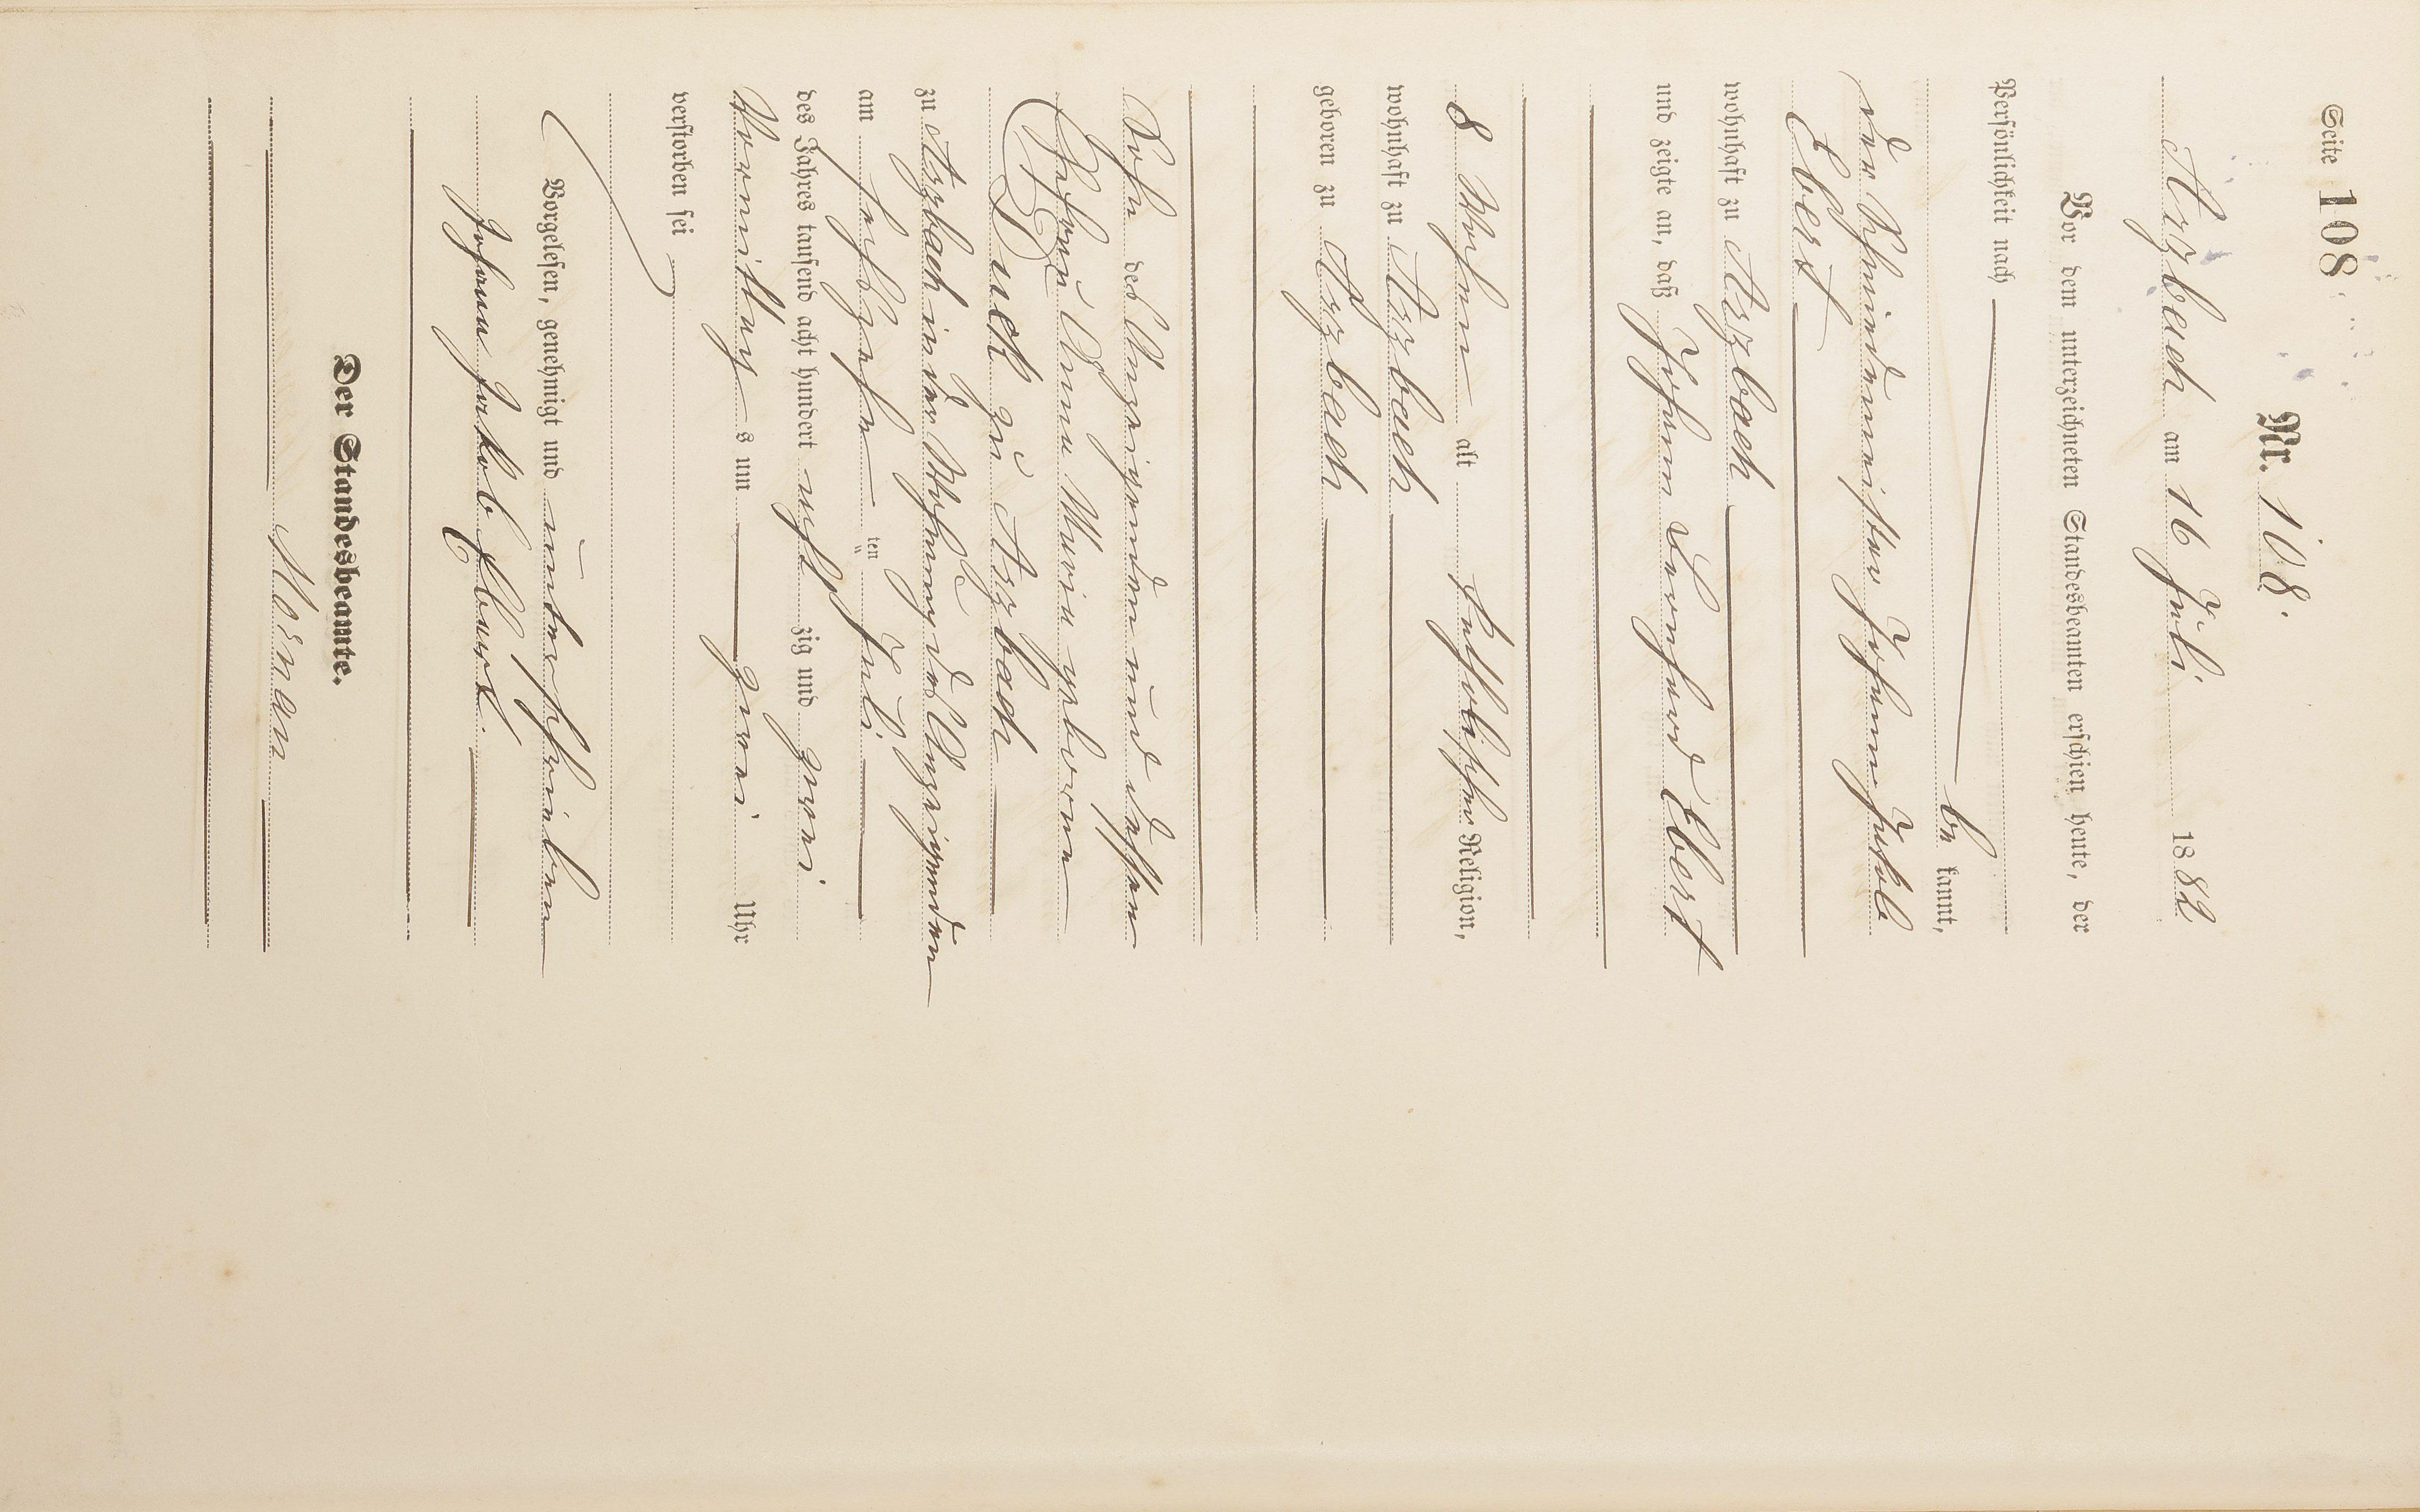 Seite 108
Nr. 108.
Arzbach am 16 Juli 1882
Vor dem unterzeichneten Standesbeamten erschien heute, der
Persönlichkeit nach
be kannt,
der Schmiedemeister Johann Jakob
Ebert
wohnhaft zu Arzbach
und zeigte an, daß Johann Leonhard Ebert
8 Wochen alt katholischer Religion,
wohnhaft zu Arzbach
geboren zu Arzbach
Sohn des Anzeigenden und dessen
Ehefrau Anna Maria geborene
Duck zu Arzbach
zu Arzbach in der Wohnung des Anzeigenden
am sechszehn ten Juli
des Jahres tausend acht hundert acht zig und zwei
Vormittag s um zwei Uhr
verstorben sei
Vorgelesen, genehmigt und unterschrieben
Johann Jakob Ebert.
Der Standesbeamte.